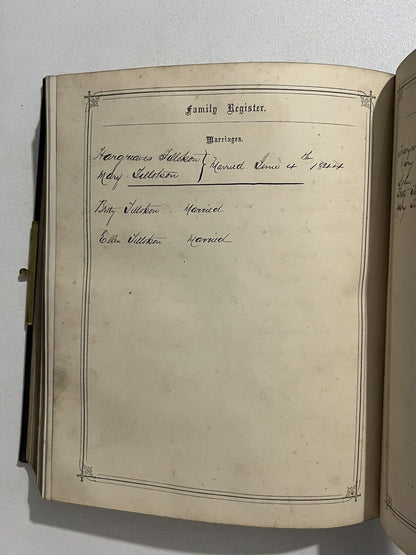 Family Register.
Marriages.
Hargreaves Tillotson
Mary Tillotson } Married June 4th 1844
Betty Tillotson. Married
Ellen Tillotson. Married